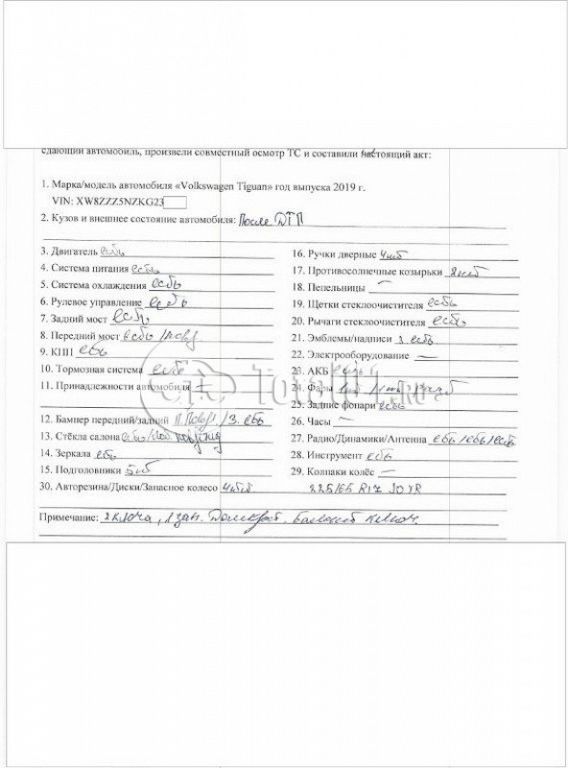 сдающий автомобиль, произвели совместный осмотр ТС и составили настоящий акт:
1. Марка/модель автомобиля «Volkswagen Tiguan» год выпуска 2019 г.
VIN: XW8ZZZ5NZKG23
2. Кузов и внешнее состояние автомобиля: После ДТП
3. Двигатель есть
4. Система питания есть
5. Система охлаждения есть
6. Рулевое управление есть
7. Задний мост есть
8. Передний мост есть / повр
9. КПП есть
10. Тормозная система есть
11. Принадлежности автомобиля
12. Бампер передний/задний П. повр / З. есть
13. Стёкла салона есть
14. Зеркала есть
15. Подголовники 5шт
16. Ручки дверные 4шт
17. Противосолнечные козырьки 2шт
18. Пепельницы —
19. Щетки стеклоочистителя есть
20. Рычаги стеклоочистителя есть
21. Эмблемы/надписи з. есть
22. Электрооборудование —
23. АКБ
24. Фары
25. Задние фонари есть
26. Часы —
27. Радио/Динамики/Антенна есть/есть/есть
28. Инструмент есть
29. Колпаки колёс —
30. Авторезина/Диски/Запасное колесо 4шт 225/65 R17
Примечание: 2 ключа, 1 зап. Домкрат. Балонный ключ.